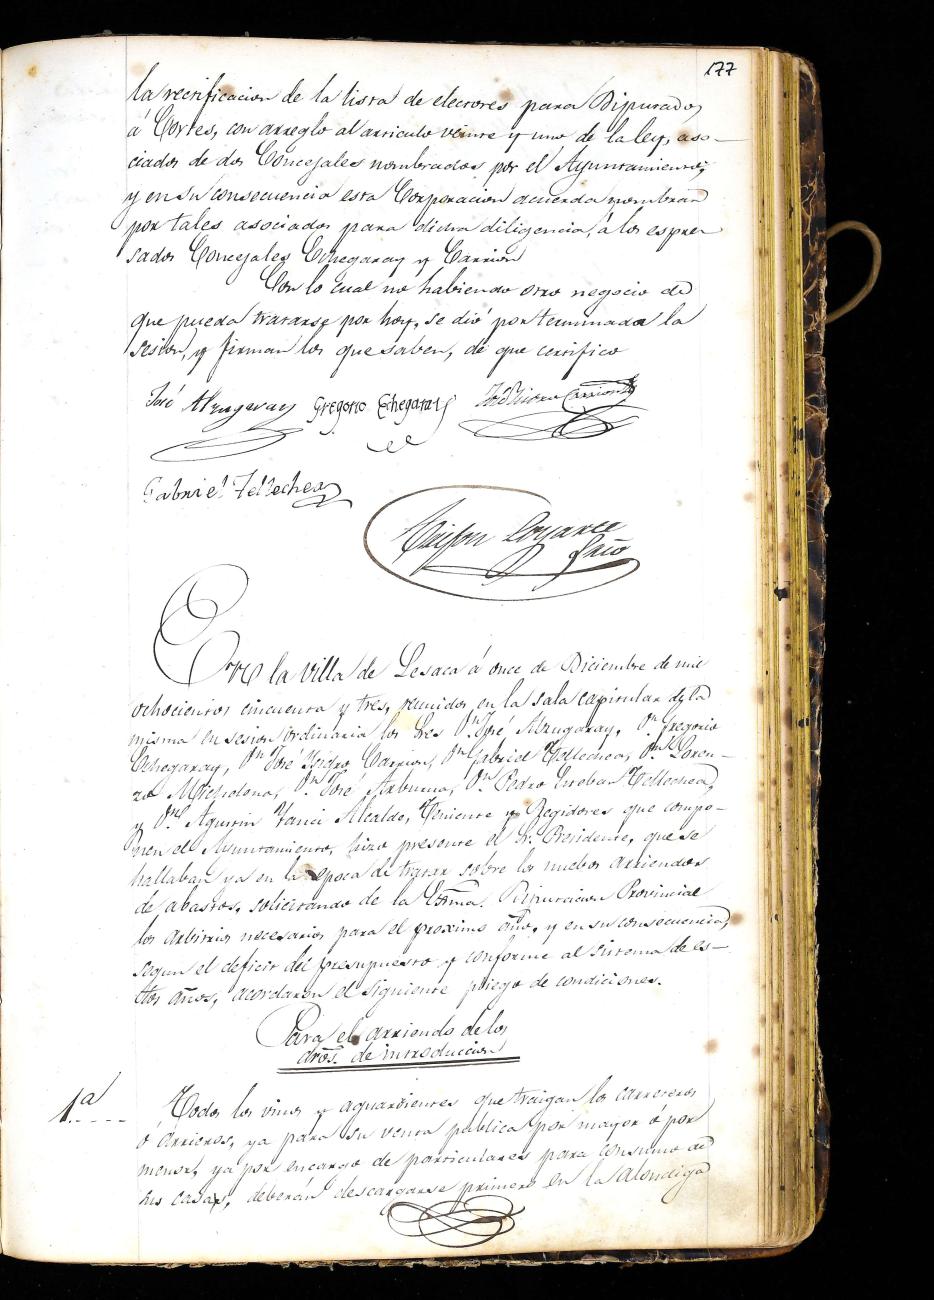 177
la rectificacion de la lista de electores para Diputados
á Cortes, con arreglo al articulo veinte y uno de la ley, aso-
ciados de dos Concejales nombrados por el Ayuntamiento,
y en su consecuencia esta Corporacion acuerda nombrar
por tales asociados para dicha diligencia, á los espre
sados Concejales Echegaray y Carrion
Con lo cual no habiendo otro negocio de
que pueda tratarse por hoy, se dió por terminada la
sesion, y firman los que saben, de que certifico
José Alzugaray Gregorio Echegaray José Ysidro Carrion
Gabriel Tellechea
Loyarte
Srio
En la villa de Lesaca á once de Diciembre de mil
ochocientos cincuenta y tres, reunidos en la sala capitular de la
misma en sesion ordinaria los Sres Dn. José Alzugaray, Dn. Gregorio
Echegaray, Dn. José Ysidro Carrion, Dn. Gabriel Tellechea, Dn. Loren-
zo Dn. José Dn. Pedro Esteban Tellechea,
y Dn. Agustin Yanci Alcalde, Teniente y Regidores que compo-
nen el Ayuntamiento, hizo presente el Sr. Presidente, que se
hallaban ya en la época de tratar sobre los nuebos arriendos
de abastos, solicitando de la Escma. Diputacion Provincial
los arbitrios necesarios para el proximo año, y en su consecuencia,
segun el deficit del presupuesto y conforme al sistema de es-
tos años, acordaron el siguiente pliego de condiciones.
Para el arriendo de los
dros. de introduccion
1a
Todos los vinos y aguardientes que traigan los carreteros
ó Arrieros, ya para su venta publica por mayor ó por
menor, ya por encargo de particulares para consumo de
sus casas, deberán descargarse primero en la alondiga